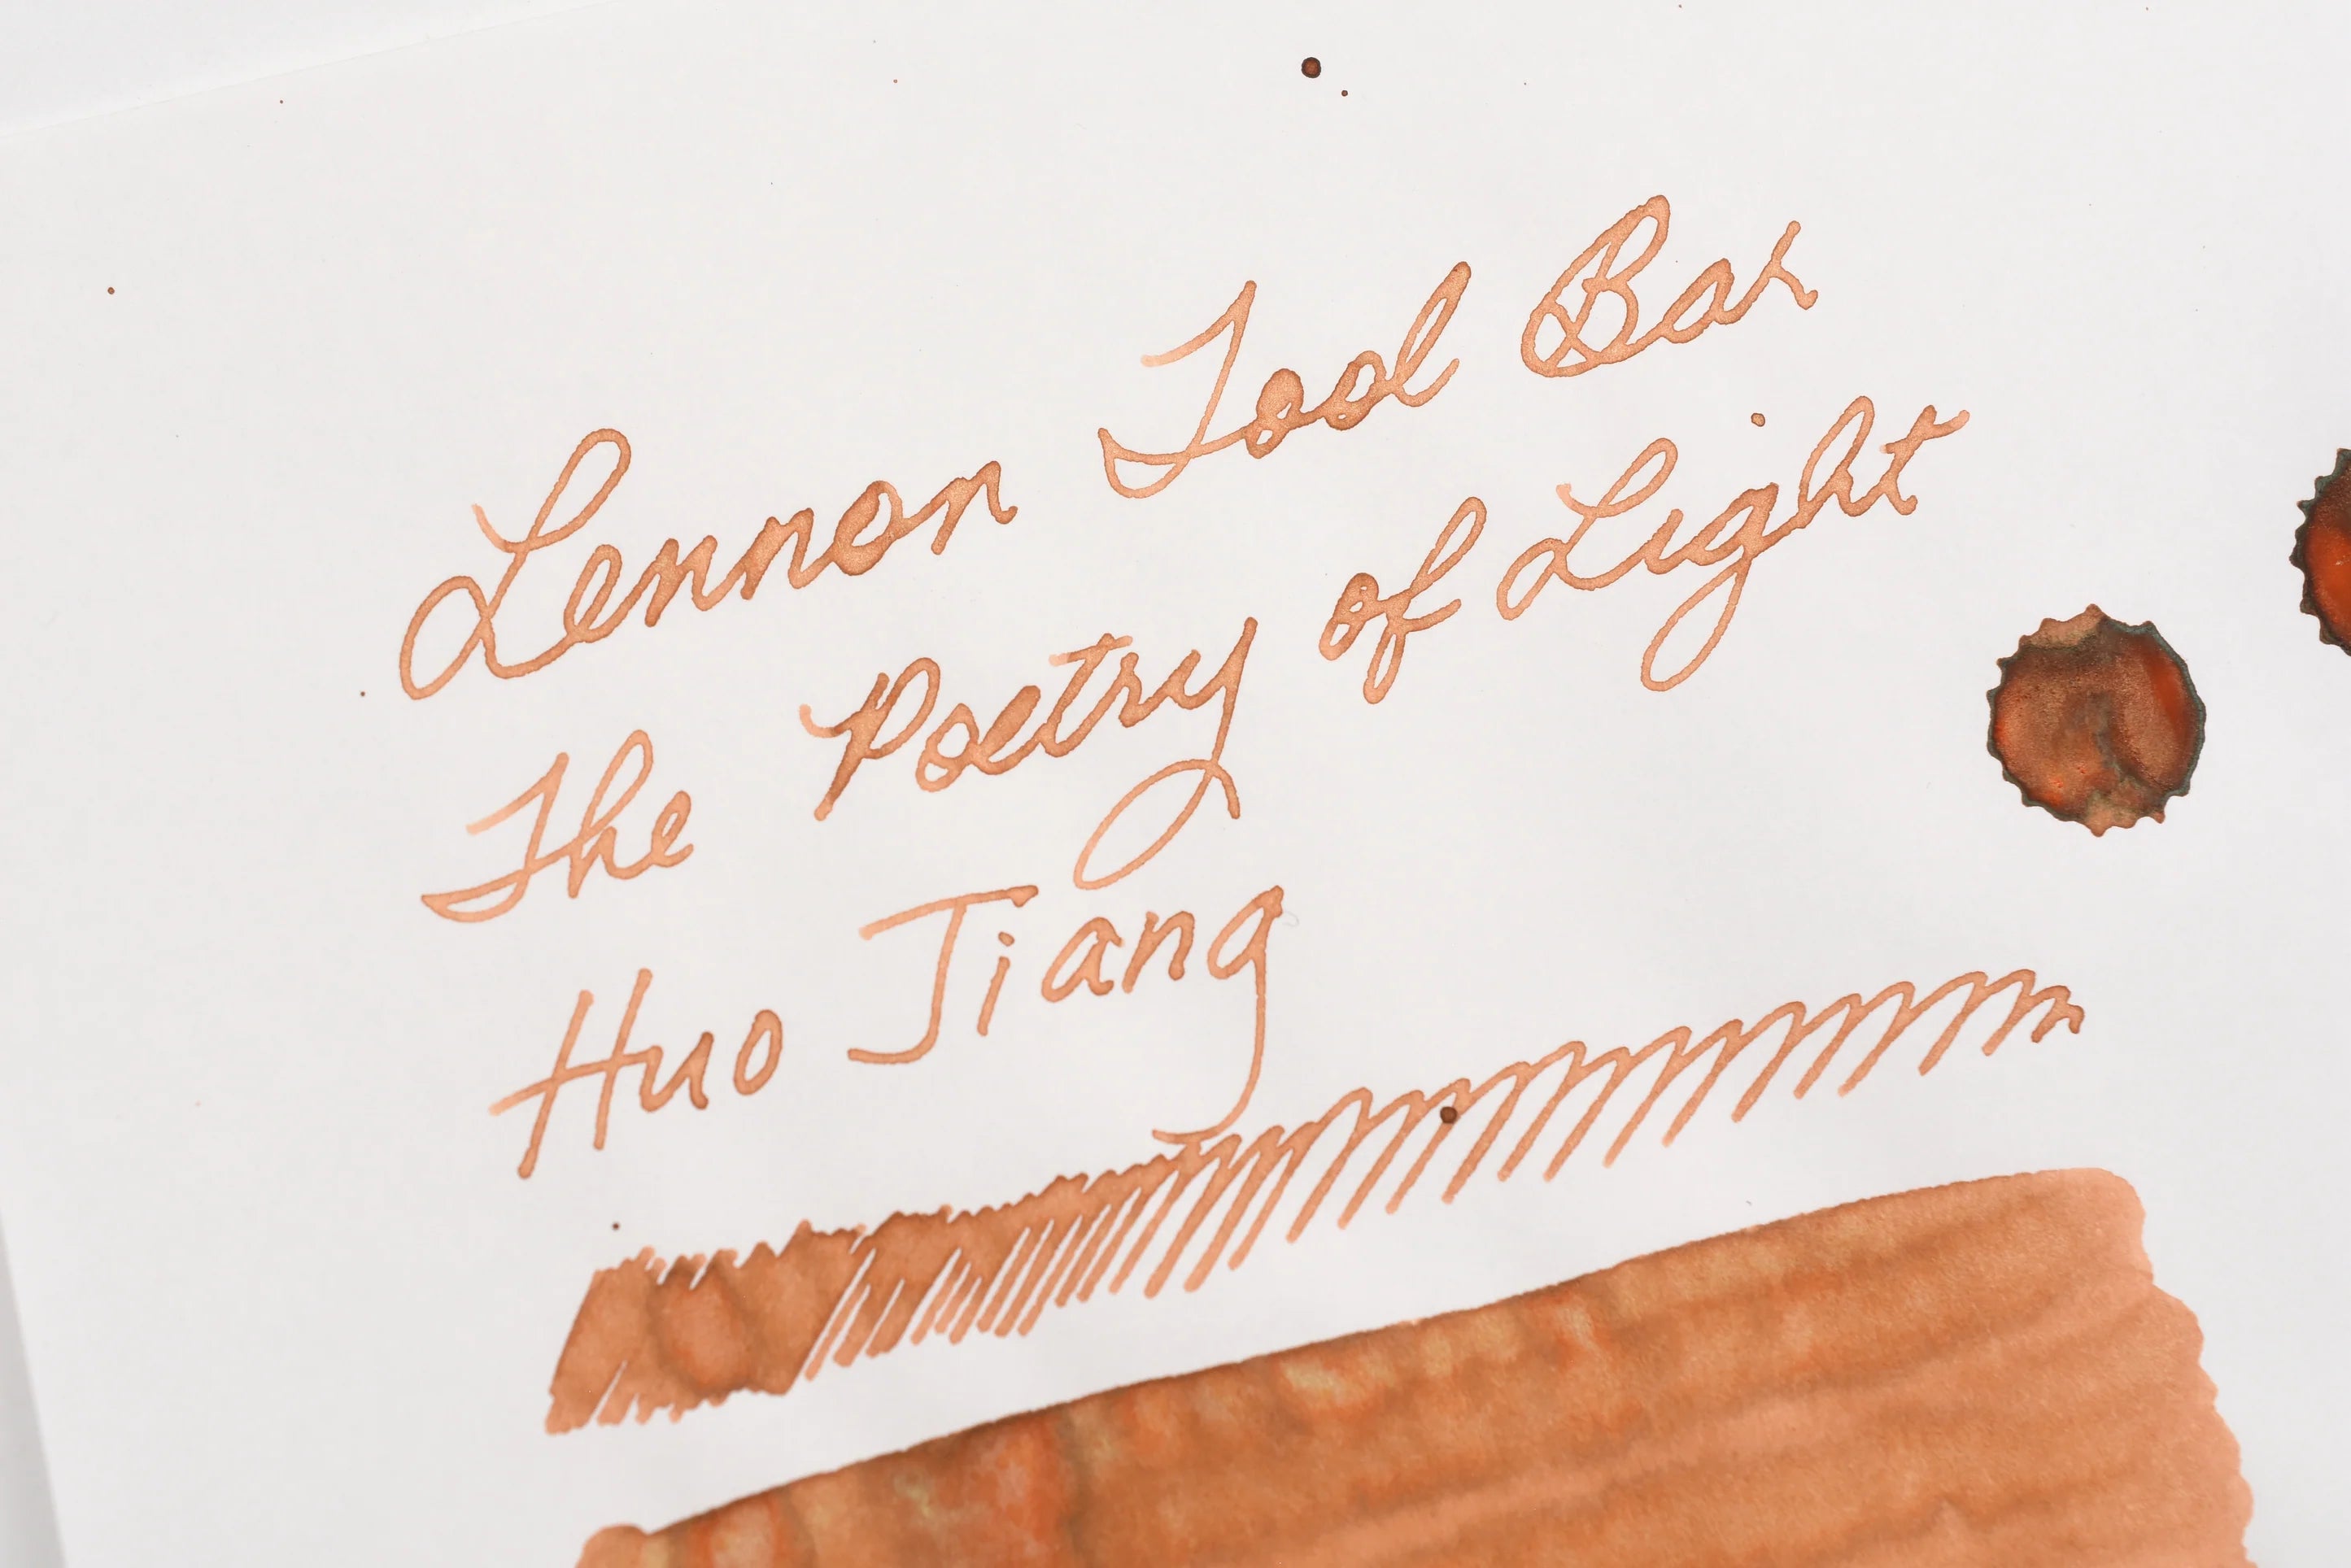 Lennon Tool Bar
The Poetry of Light
Huo Jiang